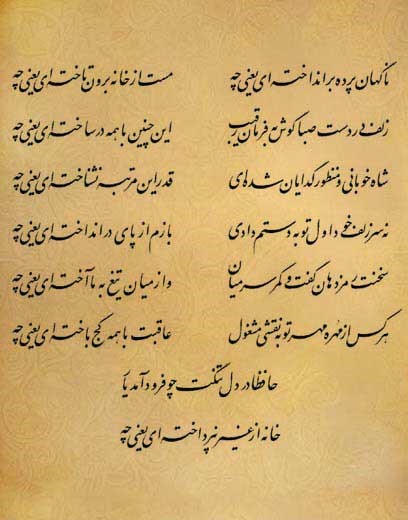 ناگهان پرده برانداخته‌ای یعنی چه مست از خانه برون تاخته‌ای یعنی چه
زلف در دست صبا گوش به فرمان رقیب این چنین با همه درساخته‌ای یعنی چه
شاه خوبانی و منظور گدایان شده‌ای قدر این مرتبه نشناخته‌ای یعنی چه
نه سر زلف خود اول تو به دستم دادی بازم از پای درانداخته‌ای یعنی چه
سخنت رمز دهان گفت و کمر سر میان وز میان تیغ به ما آخته‌ای یعنی چه
هر کس از مهره مهر تو به نقشی مشغول عاقبت با همه کج باخته‌ای یعنی چه
حافظا در دل تنگت چو فرود آمد یار
خانه از غیر نپرداخته‌ای یعنی چه